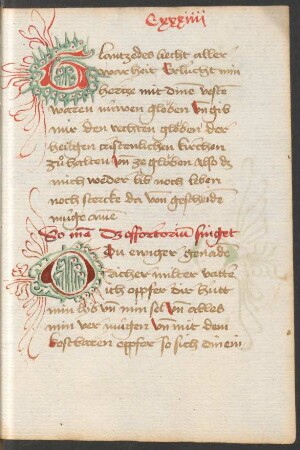 Cxxxiiii
Glantzedes liecht aller
worheit Erlücht min
hertze mit dime veste
waren núwen gloͤben Vn gib
mir den rechten gloͤben der
heilgen cristenlichen kirchen
zuͦ halten Vn ze gloͤben Also dz
mich weder lib noch leben
noch stercke da von gescheide
múge amē
So ma dz offortoriū singet
Du ewiger genade
richer milter vatte
ich opfer dir hútt
min lib vn min sel Vn alles
min vermúgen Vn mit dem
kostbaren opffer so sich din ein